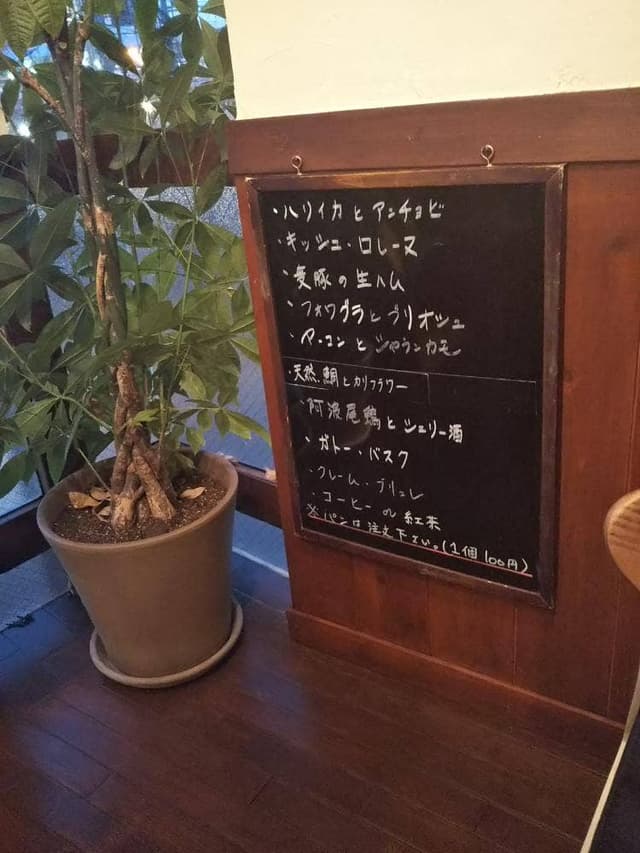 ・ハリイカとアンチョビ
・キッシュ・ロレーヌ
・麦豚の生ハム
・フォワグラとブリオシュ
・マコンとシャランカモ
・天然鯛とカリフラワー
・阿波尾鶏とシェリー酒
・ガトー・バスク
・クレーム・ブリュレ
・コーヒー or 紅茶
※パンは注文下さい。(1個100円)